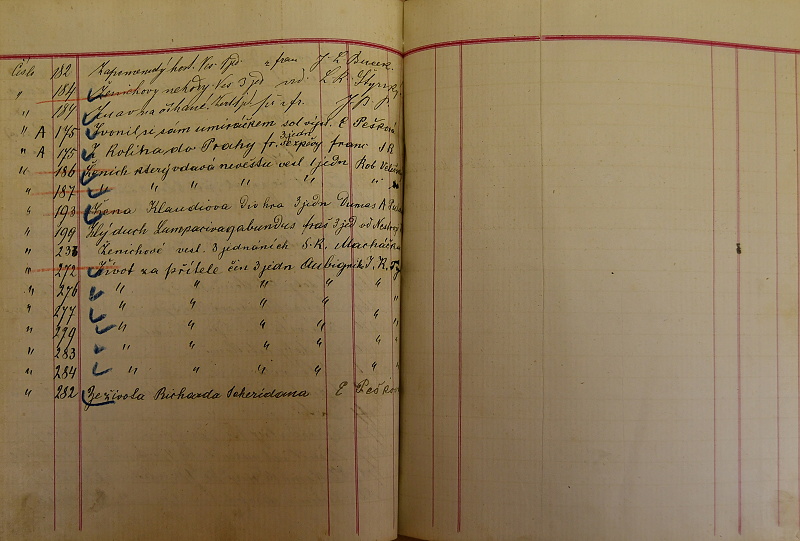 Číslo 182 Zapomenutý host. Ves. 1jd. z fran J. L. Bucek.
" 184 Ženichovy nehody Ves 3 jed
" 184
" A 175 Zvonil si sám umíráčkem sol výst. E Pešková
" A 175 Z Kolína do Prahy fr. 3jedn franc J. R
" 186 Ženich který vdává nevěstu vesl 1jedn Rob
" 187 " " " " "
" 193 Žena Klaudiova Div hra 3 jedn Dumas A
" 199 Zlý duch Lumpacivagabundus fraš 3 jed od Nestroy
" 233 Ženichové vesl. 3 jednáních S. K. Macháčka
" 272 Život za přítele čin 3 jedn Aubignik J. R.
" 276 " " " " " "
" 277 " " " " "
" 279 " " " " "
" 283 " " " " "
" 284 " " " " "
" 282 Ze života Richarda Scheridana E Peškov